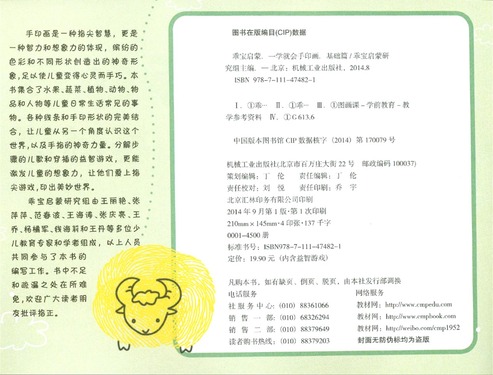 手印画是一种指尖智慧，更是
一种智力和想象力的体现，缤纷的
色彩和不同形状创造出的神奇形
象，足以使儿童变得心灵而手巧。本
书集合了水果、蔬菜、植物、动物、物
品和人物等儿童日常生活常见的事
物。各种线条和手印形状的完美结
合，让儿童从另一个角度认识这个
世界，以及手指的神奇力量。分解步
骤的儿歌和穿插的益智游戏，更能
激发儿童的想象力，让他们爱上指
尖游戏，印出美妙世界。
乖宝启蒙研究组由王丽艳、张
萍萍、范春波、王海涛、张庆亮、王
乔、杨楠军、钱海莉和王丹等多位少
儿教育专家和学者组成，以上人员
共同参与了本书的
编写工作。书中不足
和疏漏之处在所难
免，欢迎广大读者朋
友批评指正。
图书在版编目(CIP)数据
乖宝启蒙.一学就会手印画.基础篇/乖宝启蒙研
究组主编.—北京：机械工业出版社，2014.8
ISBN 978-7-111-47482-1
Ⅰ.①乖… Ⅱ.①乖… Ⅲ.①图画课-学前教育-教
学参考资料 Ⅳ.①G613.6
中国版本图书馆CIP数据核字（2014）第170079号
机械工业出版社(北京市百万庄大街22号 邮政编码100037)
策划编辑：丁 伦 责任编辑：丁 伦
责任校对：刘 悦 责任印制：乔 宇
北京汇林印务有限公司印刷
2014年9月第1版·第1次印刷
210mm×145mm·4印张·137千字
0001-4500册
标准书号：ISBN978-7-111-47482-1
定价：19.90元（内含益智游戏）
凡购本书，如有缺页、倒页、脱页，由本社发行部调换
电话服务 网络服务
社服务中心：(010) 88361066 教材网：http://www.cmpedu.com
销售一部：(010) 68326294 教材网：http://www.cmpbook.com
销售二部：(010) 88379649 教材网：http://weibo.com/cmp1952
读者购书热线：(010) 88379203 封面无防伪标均为盗版